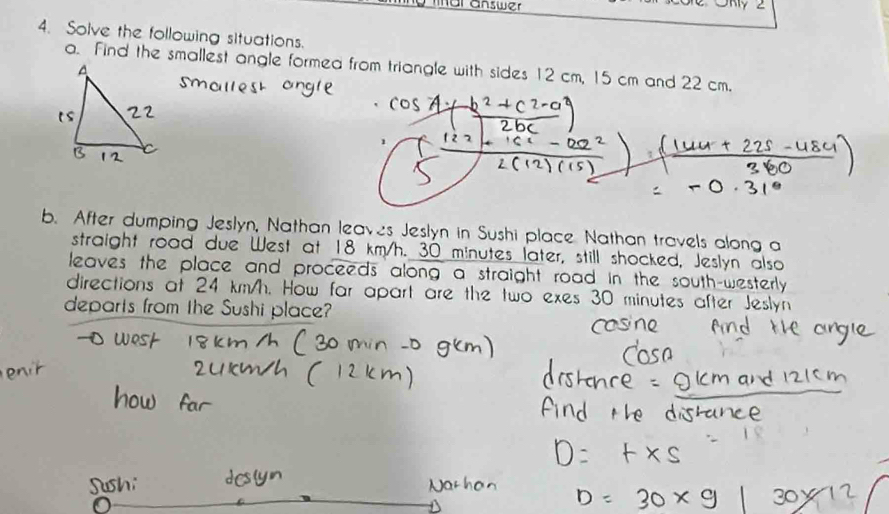 answer
Only 2
4. Solve the following situations.
a. Find the smallest angle formed from triangle with sides 12 cm, 15 cm and 22 cm.
smallest angle
A
15 22
B 12 C
cos A = ( b² + c² - a² )
2bc
( 12² + 15² - 22² ) = ( 144 + 225 - 484 )
2(12)(15) 360
= -0.31°
5
b. After dumping Jeslyn, Nathan leaves Jeslyn in Sushi place. Nathan travels along a
straight road due West at 18 km/h. 30 minutes later, still shocked, Jeslyn also
leaves the place and proceeds along a straight road in the south-westerly
directions at 24 km/h. How far apart are the two exes 30 minutes after Jeslyn
departs from the Sushi place?
cosine find the angle
→ west 18km/h (30 min → 9km)
cosA
24km/h (12km)
distance = 9km and 12km
how far
find the distance
D = t x s
Sushi deslyn Nathan
D = 30 x 9 | 30 x 12